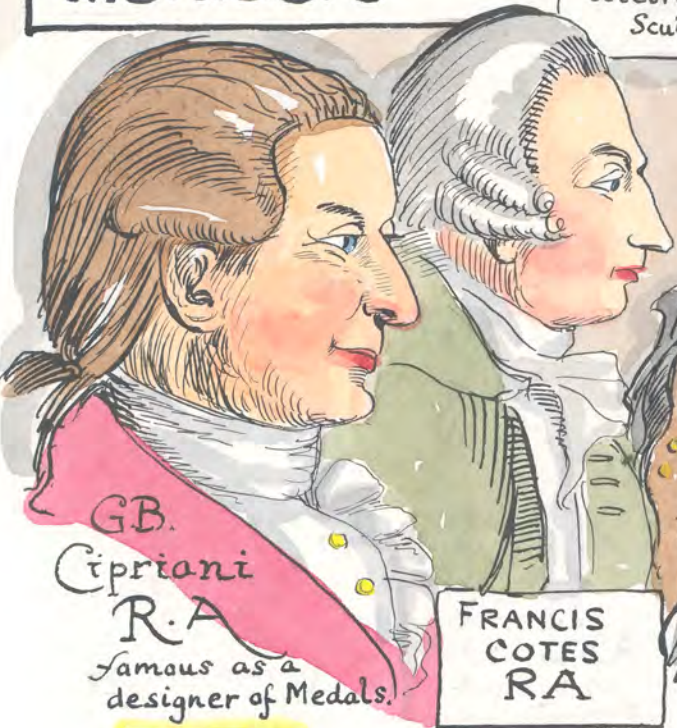 G.B.
Cipriani
R.A
famous as a
designer of Medals.
FRANCIS
COTES
RA